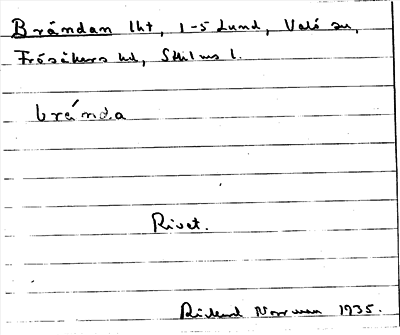 Brándan lht, 1-5 Lund, Valö sn,
Frösåkers hd, Sthlms l.
bránda
Rivet.
Rickard Norrman 1935.